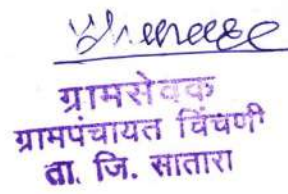 ग्रामसेवक
ग्रामपंचायत चिंचणी
ता. जि. सातारा